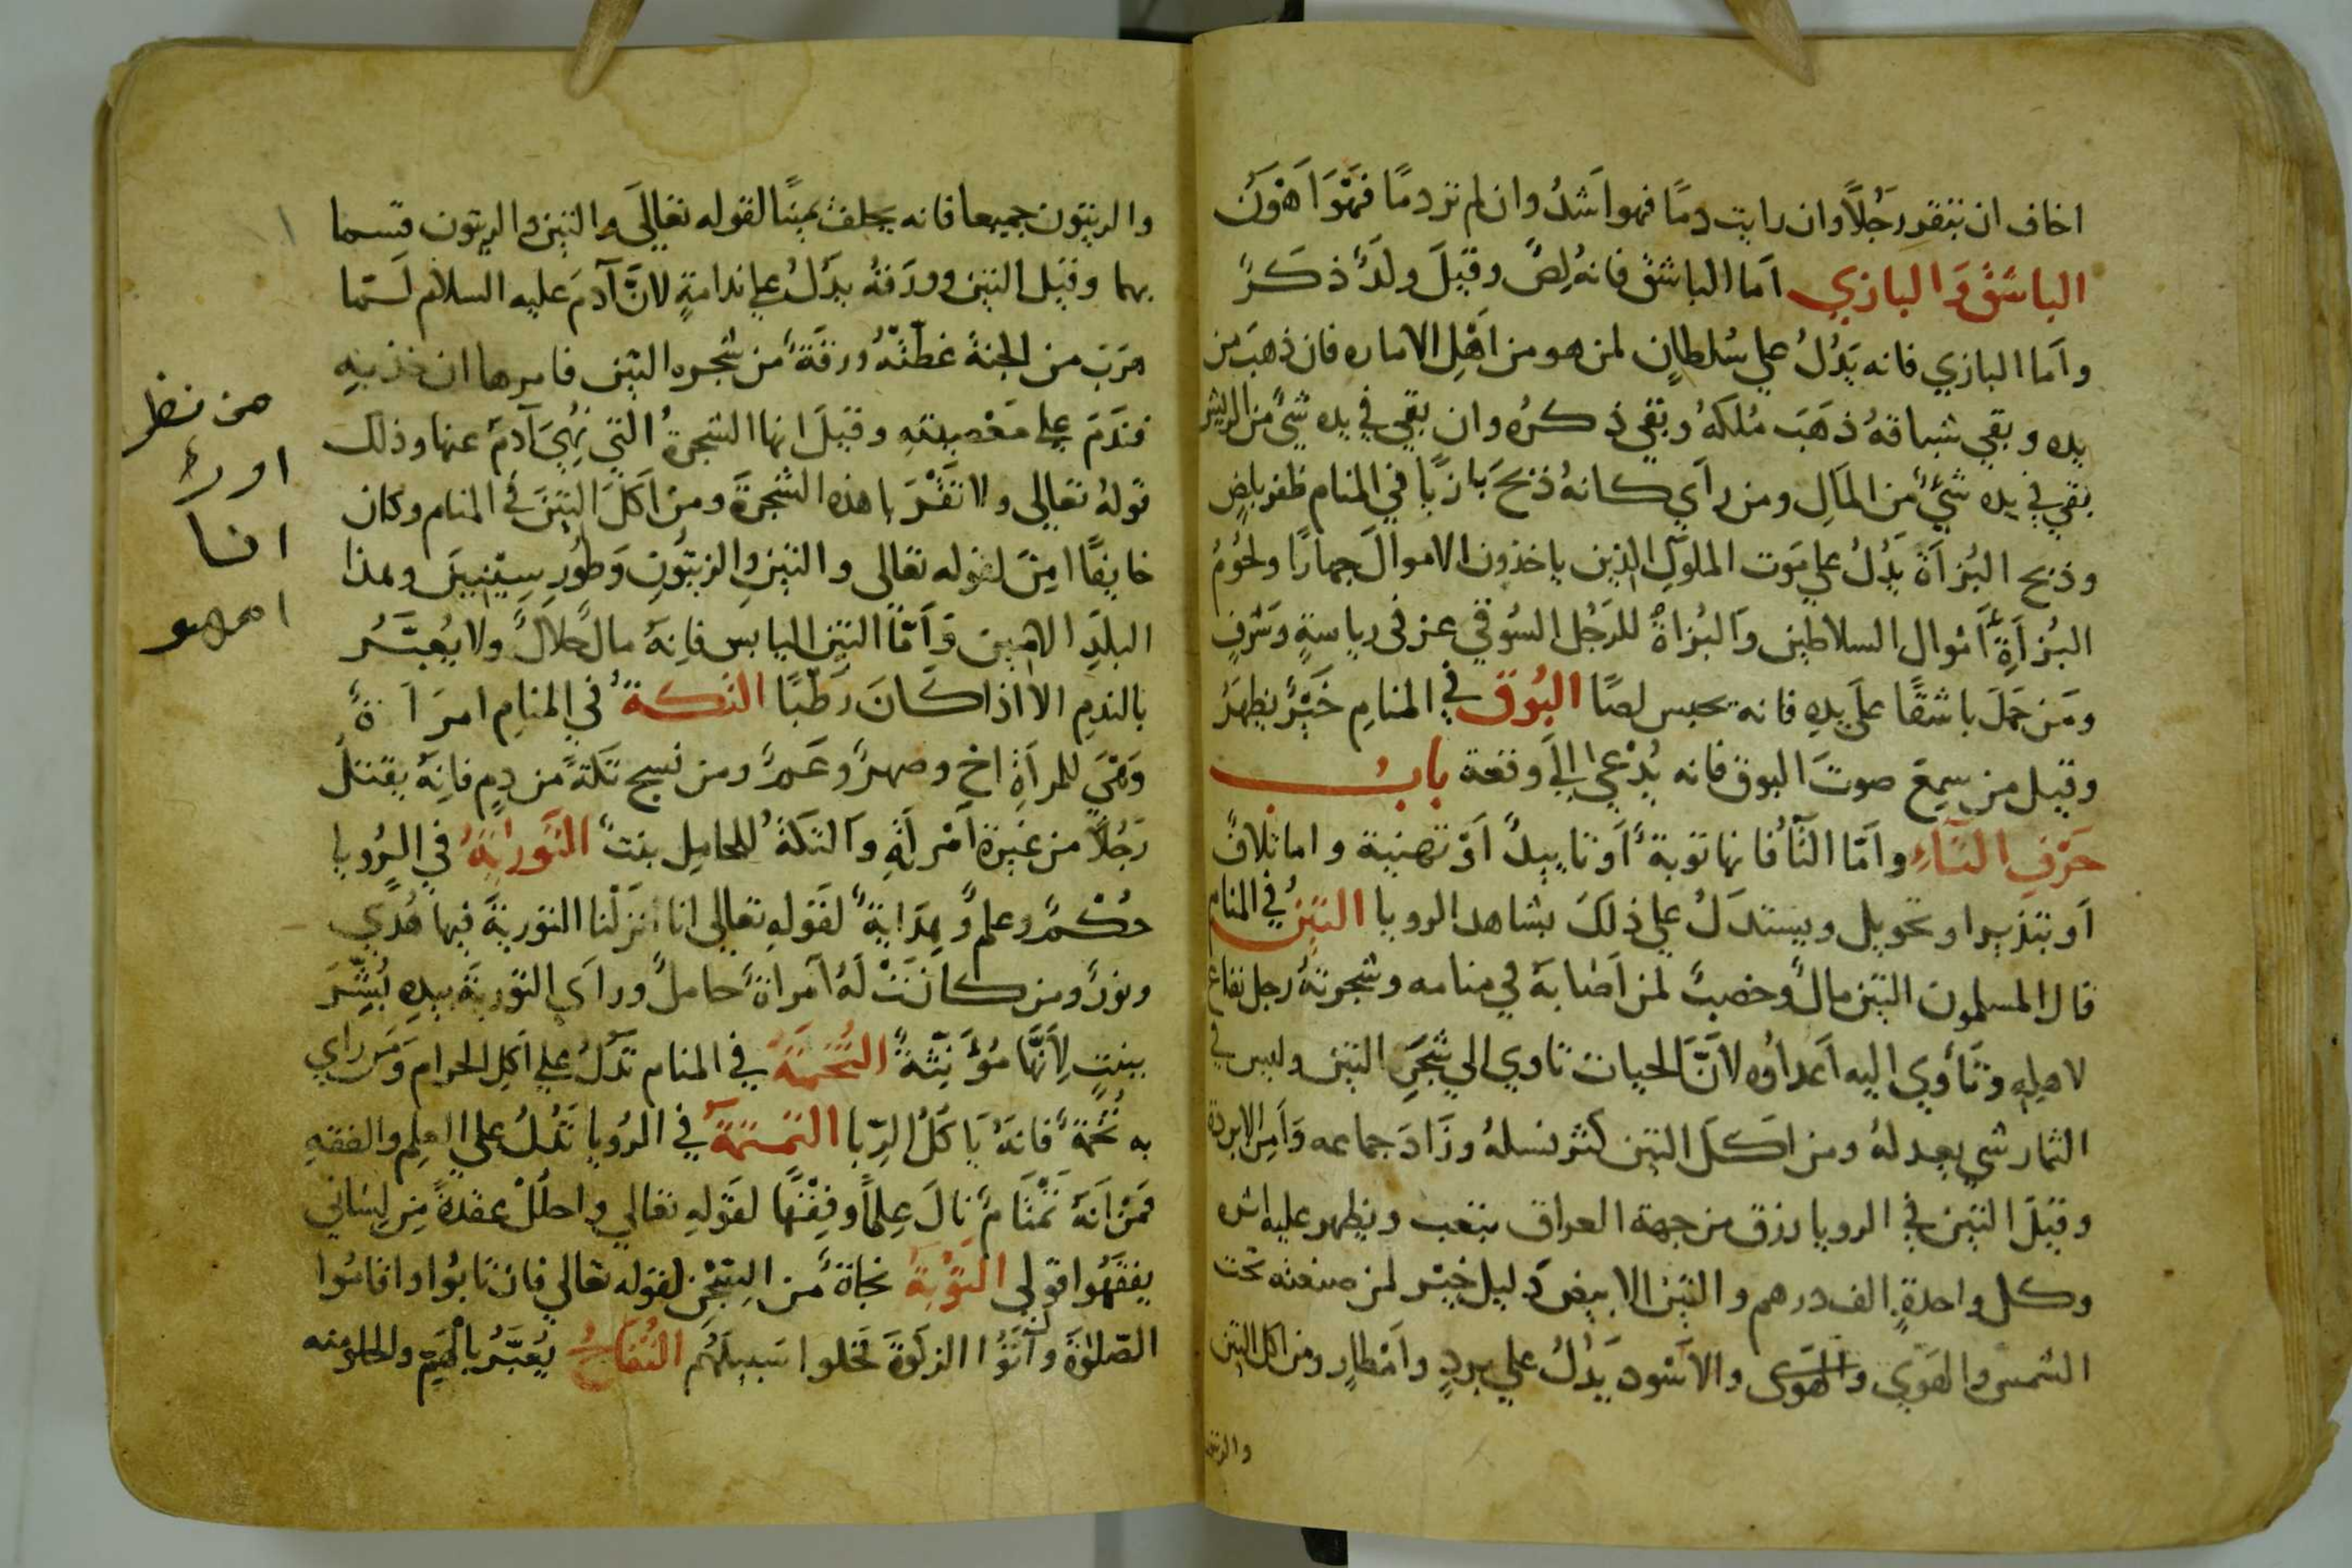 اخاف ان يتقور رَجُلاً وان رايت دمًا فهوا شدُ وان لم تر دمًا فَهْوَ اَهْوَن
الباشَقْ وَ البازي اَما الباشق فانهُ لِصٌ وقيلَ ولدٌ ذكَرٌ
واَما البازي فانه يَدُلُ على سُلطانٍ لمن هو من اَهْلِ الاماره فان ذهبَ من
يده وبقي شباقهُ ذهَبَ مُلكهُ وبقي ذكرُه وان بقي في يده شيٌ من الريش
بقي في يده شيٌ من المَالِ ومن راَي كانهُ ذبَحَ بازيًا في المنام ظفر بلصٍ
وذبح البُزاَة يَدُلُ على مَوت الملوكِ الذين ياخذون الاموالَ جهارًا ولحُومُ
البُزاَةِ اَمْوال السلاطين وَالبُزاةُ للرَجُل السُوقي عز في رياسةٍ وَشَرفٍ
ومَن حمَلَ باشقًا على يدهِ فانه يحبس لصًا البُوق في المنامِ خَبَرٌ يظهَرُ
وقيل من سمِعَ صوتَ البوق فانه يُدْعى الي وقعة بابُ
حَرْفِ التَاءِ واَمّا التَاُ فانها توبةٌ اَو تاييدٌ اَوْ تهنية واما تلافٌ
اَو تبذيرا و تحويل ويستدَلُ على ذلكَ بشاهد الرويا التينُ في المنام
قال المسلمون التين مالٌ وخصبٌ لمن اَصَابهَ في منامه وشجرتهُ رجل نفاع
لاهله وتَأوِي اليه اَعداؤه لاَنَّ الحيات تاوي الي شجَرِ التين وليس في
الثمار شي يعدلهُ ومن اكلَ التين كثر نسلهُ وزَادَ جماعه وَاَمِن الابردة
وقيلَ التين في الرويا رزق من جهة العراق بتعب ويظهر عليه اثره
وكل واحدةٍ الف درهم والتين الابيض دَليل خيرٍ لمن صنعته تحت
الشمس والهَوَي والهوى والاَسْود يَدُلُ على بردٍ واَمْطارٍ ومن اكل التين
والزيتون جميعا فانه يحلف يمينًا لقوله تعالي والتين والزيتون قسما
بهما وقيل التين وورَقهُ يدَلُ على ندامةٍ لانَّ آدمَ عليه السلام لَمّا
هرَبَ من الجنة غطّتْهُ ورقةٌ من شجره التين فامرها ان خذيهِ
فندَمَ على مَعْصِيتهِ وقيلَ انها الشجرةُ التي نهُيَ آدم عنها وذلك
قولهُ تعالى ولا تقْرَبا هذه الشجرةَ ومن اَكلَ التينَ في المنام وكان
خايفًا امِنَ لقوله تعالى والتينِ والزيتُونِ وَطُورِ سِينينَ وهذا
البلَدِ الامين وَاَمّا التين اليابس فاِنهَُ مالٌ حلالٌ ولا يُعبَّرُ
بالندمِ الا اذا كانَ رَطْبًا التكةُ في المنامِ امرَاَةٌ
وَهْيَ للمرأَةِ اخ وصهرٌ وعَمٌ ومن نسج تكةً من دمٍ فاِنهُ يقتل
رَجُلاً من غيرة اَمْراَةٍ وَالتكةُ للحامِل بنتٌ التَوراةُ في الرُويا
حُكْمٌ وعلمٌ وهِدَايةٌ لقَولهِ تعالي انا اَنزَلْنا التوريةَ فيها هُدًي
ونورٌ ومن كانَتْ لهُ اَمراةٌ حاملٌ وراَي التوريةَ بيدهِ بُشِّرَ
ببنتٍ لِاَنَّهَا مُؤَنثةٌ التُخمَةُ في المنام تَدُلُ علي اكلِ الحرام وَمَن راي
به تُخمةٌ فانهُ يَاكَلُ الرِّبا التَمتمةُ في الرُويا تَدُلُ على العِلمِ والفقهِ
فمَنْ اَنهَُ تمْتَامٌ نالَ عِلمًا وفِقْهًا لقَولهِ تعالي واحلُلْ عقدةً مِن لِسَاني
يفقَهُوا قولي التَوْبةُ نجاةٌ من السِجْنِ لقوله تعالي فان تابُوا واقامُوا
الصَلوٰةَ وآتَوُا الزكَوةَ فَخلوا سَبيلَهُم التُفاحُ يُعَبَّرُ بالهَمِّ والحلو منه
من نظر
انا